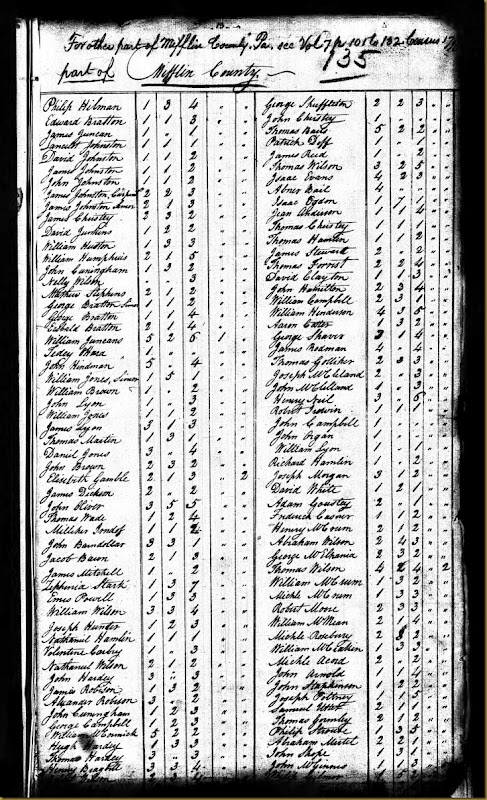 For other part of Mifflin County Pa. see Vol 7 p 101 to 132 Census 17
135
part of Mifflin County.
Philip Hilman 1 3 4 " "
Edward Bratton 1 1 3 " "
James Junean 1 1 1 " "
Johnston 1 1 1 " "
David Johnston 1 1 2 " "
James Johnston 1 1 2 " "
John Johnston 1 1 3 " "
James Johnston, 2 2 3 " "
James Johnston 2 1 3 " "
James Christy 2 3 2 " "
David Junkins 1 2 2 " "
William Huston 1 3 3 " "
William Humphris 2 1 5 " "
John Cuningham 1 3 2 " "
Nelly Wilson " " 3 " "
Mathew Stephens 2 1 2 " "
George Bratton Senior 1 1 2 " "
George Bratton 1 1 4 " "
Bratton 2 1 4 " "
William Juneans 5 2 6 1 "
Ward 1 " " " "
John Hindman 5 " 4 " "
William Jones, Senior 1 5 1 " "
William Brown 1 " 2 " "
John Lyon 1 " 3 " "
William Jones 1 1 2 " "
James Lyon 3 1 3 " "
Thomas Martin 1 3 1 " "
Daniel Jones 3 " 4 " "
John Brown 2 3 2 " "
Elisebith Gamble 2 1 3 " 2
James Dickson 2 " 2 " "
John Oliver 3 5 5 " "
Thomas Wade 1 2 4 " "
1 1 2 " "
John Barndollar 3 3 1 " "
Jacob Baum 2 1 3 " "
James Mitchell 1 " 2 " "
Zephenia Stark 1 3 7 " "
Enos Powell 1 3 3 " "
William Wilson 3 3 4 " "
Joseph Hunter 1 2 3 " "
Nathaniel Hamlin 1 1 1 " "
Volentine 1 " 3 " "
Nathaniel Wilson 2 1 2 " "
John Hardey 1 " 3 " "
James Robison 1 3 2 " "
Alexander Robison 3 " 2 " "
John Cuningham 1 2 3 " "
George Campbell 1 2 3 " "
William McCormick 5 2 2 " "
Hugh Hardey 1 3 3 " "
Thomas Hardey 3 " 3 " "
Henry 3 " 4 " "
George Shuffleton 2 2 3 " "
John Christy 1 " " " "
Thomas Bails 5 2 2 " "
Patrick 1 1 1 " "
James Reed 1 " 2 " "
Thomas Wilson 3 2 5 " "
Isaac Evans 4 2 3 " "
Abner Bail 4 " " " "
Isaac Ogdon 1 7 " " "
Jean Anderson " 1 4 " "
Thomas Christy 1 1 1 " "
Thomas 1 1 2 " "
James Steward 2 " 2 " "
Thomas Forrest 2 2 4 " "
David Clayton 1 1 3 " "
John Hamilton 2 3 4 " "
William Campbell 2 3 1 " "
William Henderson 4 3 5 " "
Aaron 1 3 2 " "
George Shaver 3 1 4 " "
James Rodman 4 " 4 " "
Thomas Gollither 2 3 3 " "
Joseph McClelland 2 " 3 " "
John McClelland 1 " 3 " "
Henry Neil 3 " 6 " "
Robert 1 1 1 " "
John Campbell 1 " " " "
John Organ 1 " " " "
William Lyon 1 " " " "
Richard Hamlin 1 " 2 " "
Joseph Morgan 3 1 2 " "
David White 1 2 1 " "
Adam 2 1 1 " "
Frederick 1 1 2 " "
Henry McCrum 2 1 2 " "
Abraham Wilson 2 4 3 " "
George McElhania 2 3 2 " "
Thomas Wilson 4 2 4 " 2
William McCrum 1 3 2 " "
Michle McCrum 1 3 3 " "
Robert Moore 2 3 3 " "
William McMean 2 1 4 " "
Michle Rosbury 2 2 " "
William McCrakin 1 3 3 " "
Michle 2 " 2 " "
John Arnold 1 " 4 " "
John Stephenson 1 2 2 " "
Joseph Poltney 1 " 5 " "
Samuel 2 1 2 " "
Thomas Gormley 2 1 2 " "
Philip Stroube 1 3 5 " "
Abraham 2 1 2 " "
John Shope
John McGinnis